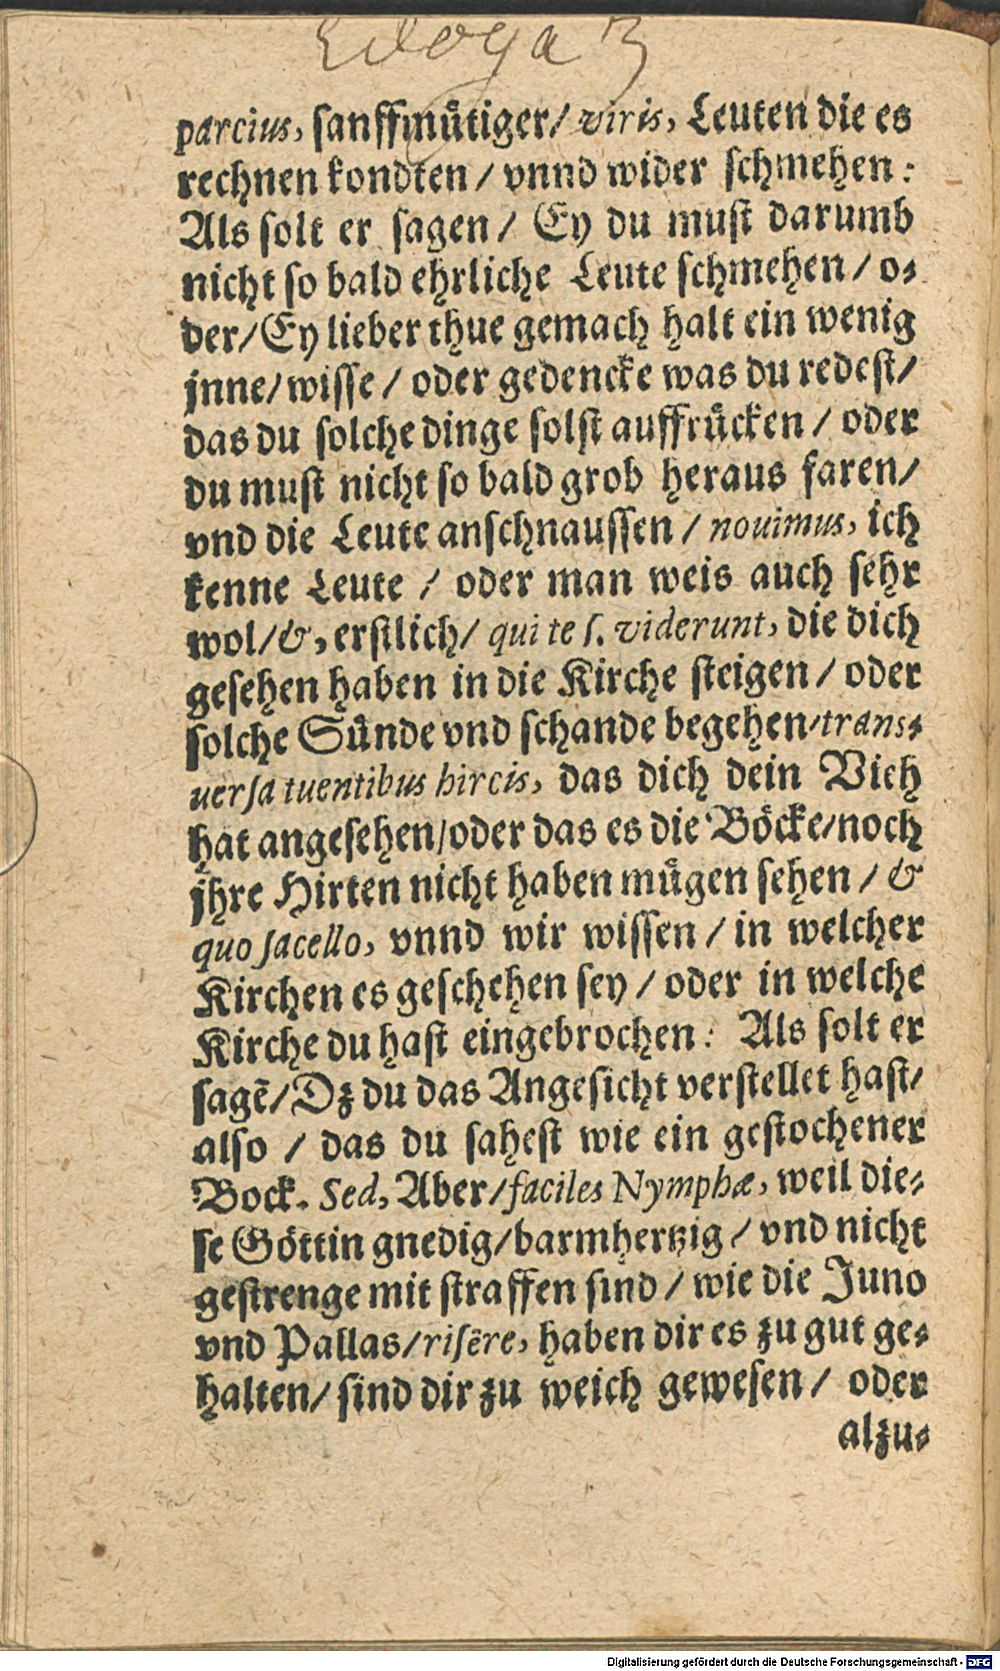 Edoga 3
parcius, sanffmuͤtiger/ viris, Leuten die es
rechnen kondten / vnnd wider schmehen:
Als solt er sagen / Ey du must darumb
nicht so bald ehrliche Leute schmehen / o-
der/ Ey lieber thue gemach halt ein wenig
jnne/ wisse / oder gedencke was du redest/
das du solche dinge solst auffruͤcken / oder
du must nicht so bald grob heraus faren/
vnd die Leute anschnaussen / nouimus, ich
kenne Leute / oder man weis auch sehr
wol/ &, erstlich/ qui te s. viderunt, die dich
gesehen haben in die Kirche steigen / oder
solche Suͤnde vnd schande begehen/ trans-
uersa tuentibus hircis, das dich dein Vieh
hat angesehen/ oder das es die Boͤcke/ noch
jhre Hirten nicht haben muͤgen sehen / &
quo sacello, vnnd wir wissen / in welcher
Kirchen es geschehen sey / oder in welche
Kirche du hast eingebrochen: Als solt er
sagē/ Dz du das Angesicht verstellet hast/
also / das du sahest wie ein gestochener
Bock. Sed, Aber/ faciles Nymphæ, weil die-
se Goͤttin gnedig/ barmhertzig / vnd nicht
gestrenge mit straffen sind / wie die Juno
vnd Pallas/ risēre, haben dir es zu gut ge-
halten/ sind dir zu weich gewesen / oder
alzu-
Digitalisierung gefördert durch die Deutsche Forschungsgemeinschaft - DFG